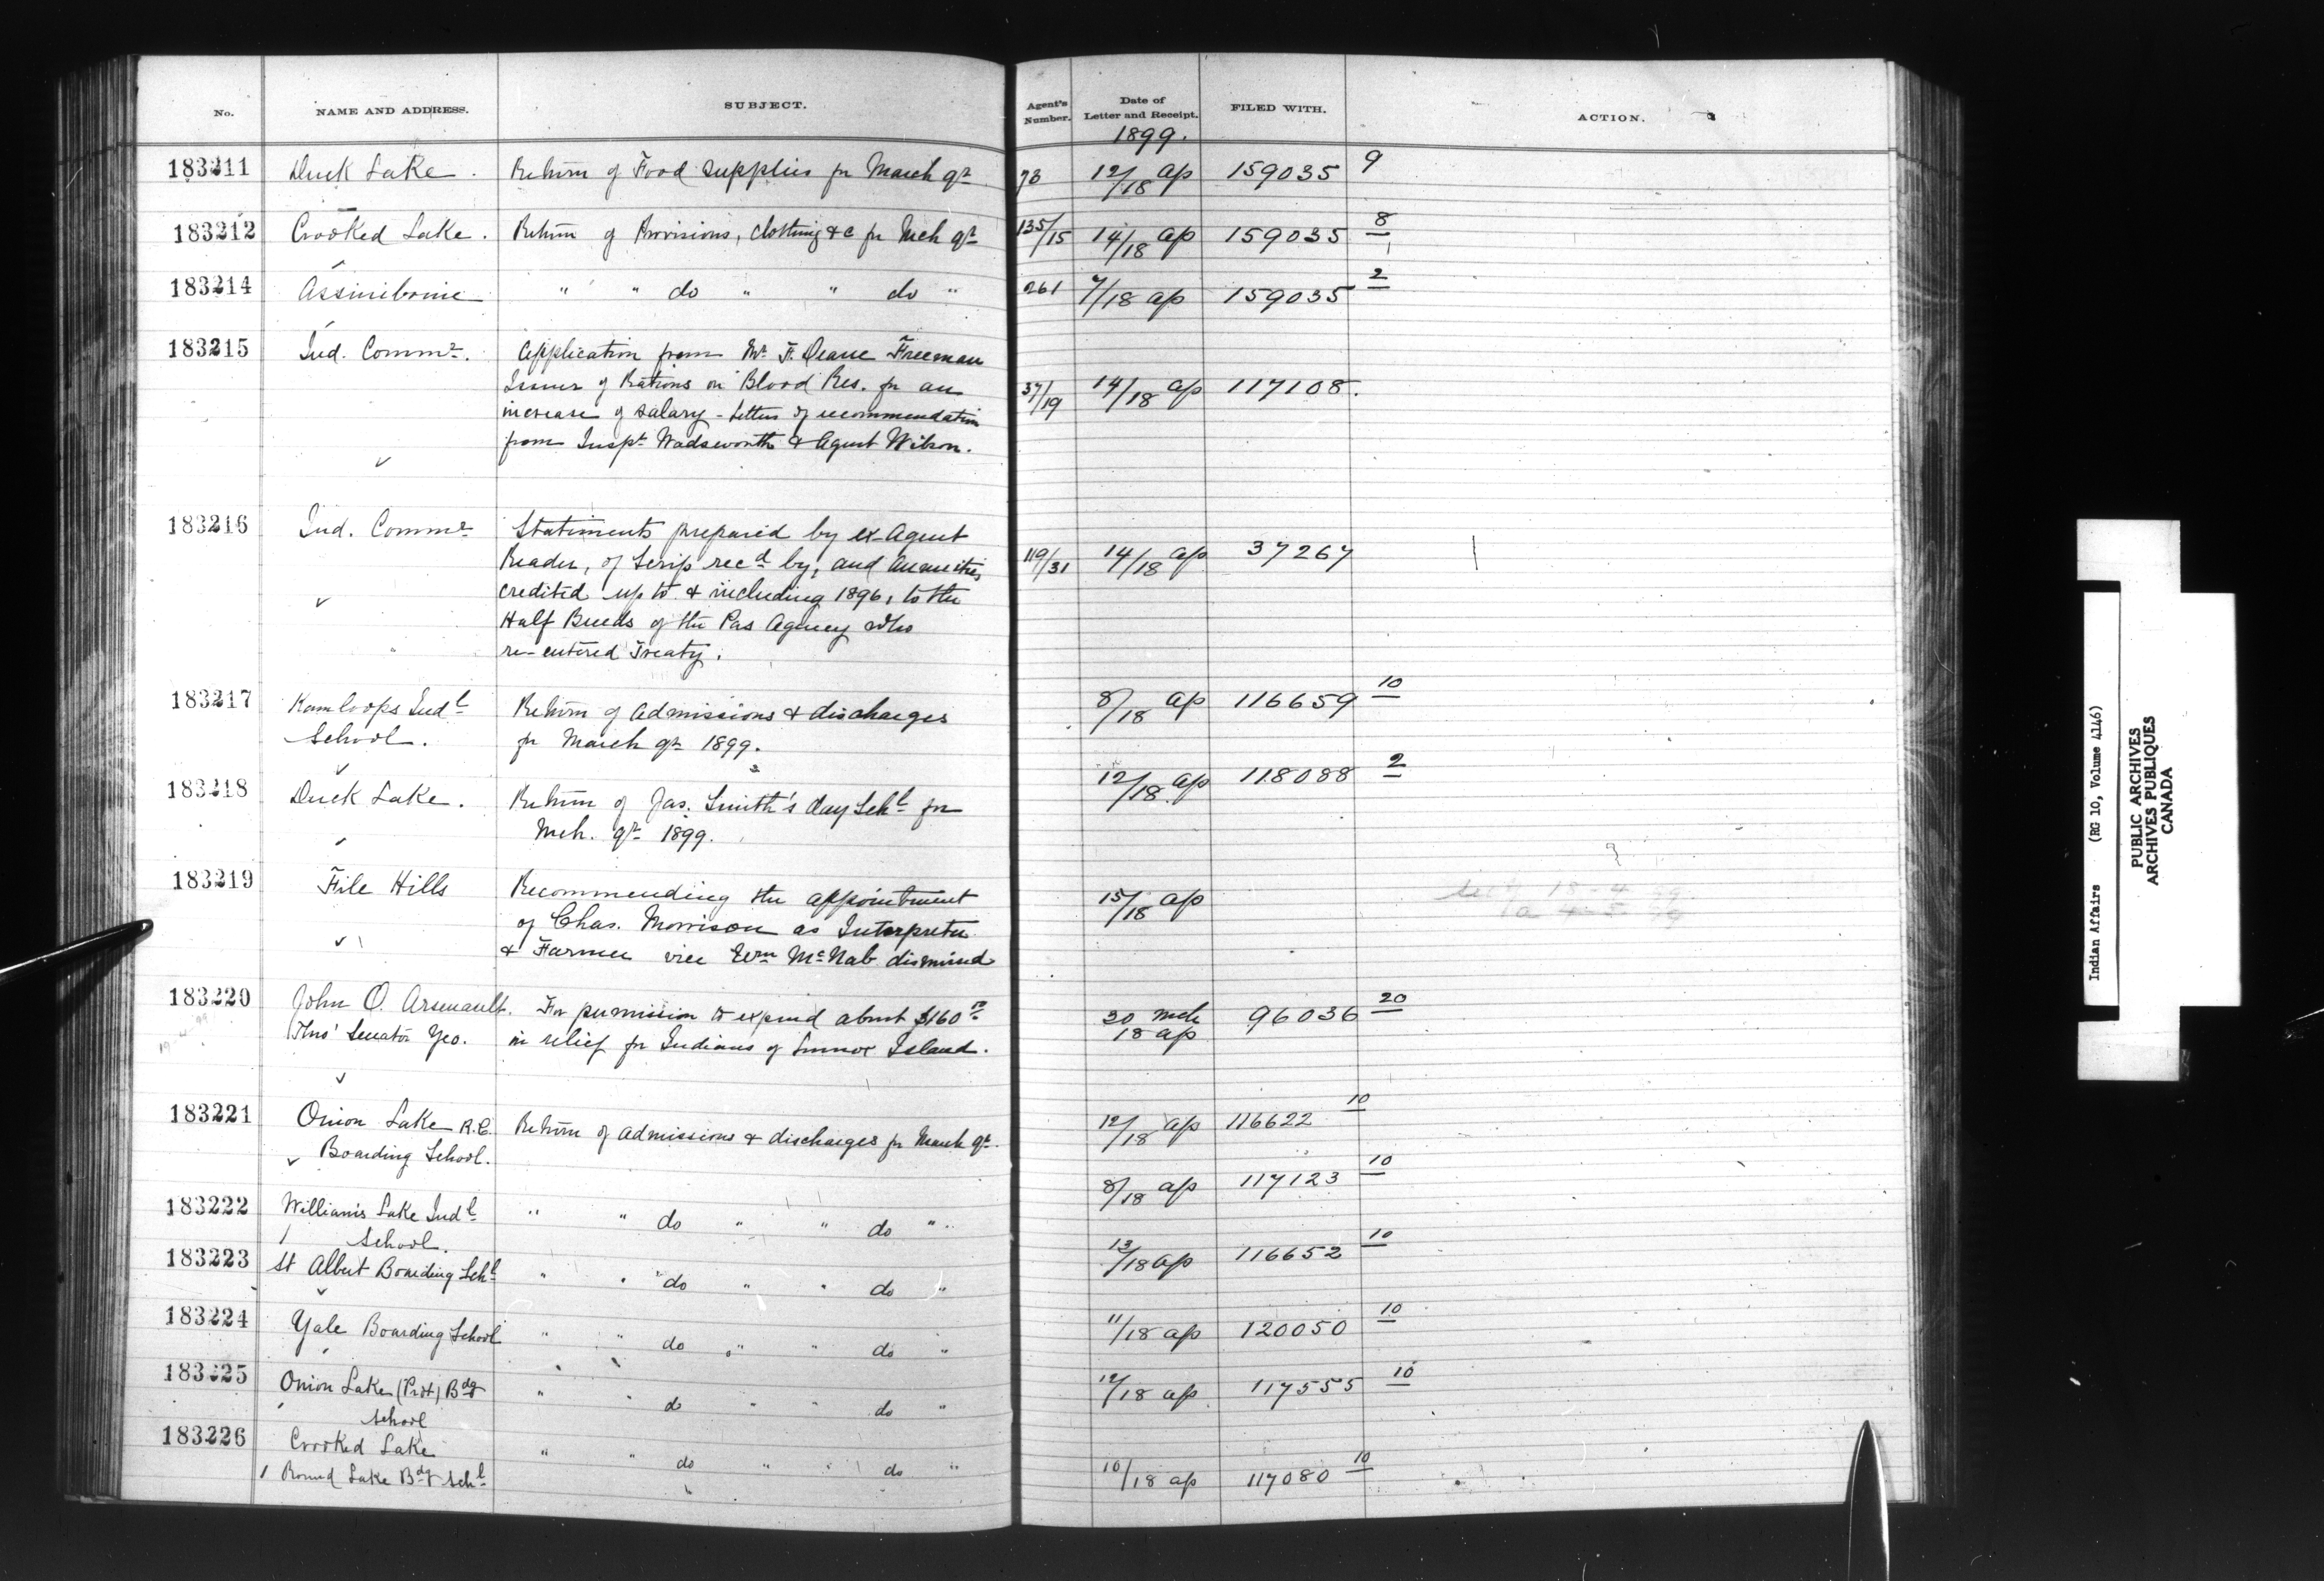 No. NAME AND ADDRESS. SUBJECT. Agent's Number. Date of Letter and Receipt. FILED WITH. ACTION.
1899.
183211 Duck Lake. Return of Food Supplies for March qr 12/18 ap 159035 9
183212 Crooked Lake. Return of Provisions, clothing &c for Mch qr 135/15 14/18 ap 159035 8
183214 Assiniboine " " do " " do " 261 7/18 ap 159035 2
183215 Ind. Commr. Application from Mr F. Deane Freeman
Issuer of Rations on Blood Res. for an 37/19 14/18 ap 117108.
increase of salary - Letters of recommendation
from Inspt Wadsworth & Agent Wilson.
183216 Ind. Commr Statements prepared by ex-Agent
Reader, of Scrip recd by, and Annuities 119/31 14/18 ap 37267
credited up to & including 1896, to the
Half Breeds of the Pas Agency who
re-entered Treaty.
183217 Kamloops Indl Return of Admissions & discharges 8/18 ap 116659 10
School. for March qr 1899.
183218 Duck Lake. Return of Jas. Smith's day Schl for 12/18 ap 118088 2
Mch. qr 1899.
183219 File Hills Recommending the appointment 15/18 ap
of Chas. Morrison as Interpreter
& Farmer vice Wm McNab dismissed
183220 John O. Arsenault. For permission to expend about $160 30 Mch 96036 20
Thro' Senator Yeo. in relief for Indians of Lennox Island. 18 ap
183221 Onion Lake R.C. Return of Admissions & discharges for March qr. 12/18 ap 116622 10
Boarding School.
183222 Williams Lake Indl " " do " " do " 8/18 ap 117123 10
School.
183223 St Albert Boarding Schl " " do " " do " 13/18 ap 116652 10
183224 Yale Boarding School " " do " " do " 11/18 ap 120050 10
183225 Onion Lake (Prot) Bdg " " do " " do " 12/18 ap 117555 10
School
183226 Crooked Lake " " do " " do " 10/18 ap 117080 10
Round Lake Bdg Schl
Indian Affairs (RG 10, Volume 4146)
PUBLIC ARCHIVES
ARCHIVES PUBLIQUES
CANADA